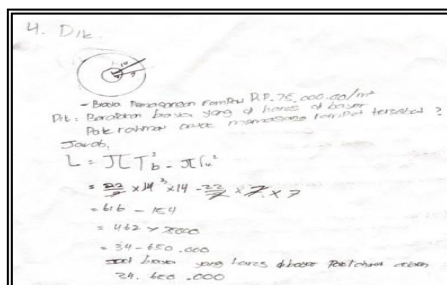 4. Dik.
- Biaya Pemasangan rumput R.P. 75.000.00/m²
Dit: Berapakah biaya yang d harus d bayar
Pak rahman untuk memasang rumput tersebut ?
Jawab,
L = π r_b² - π r_k²
= 22/7 × 14² × 14 - 22/7 × 7 × 7
= 616 - 154
= 462 ×
= 34 - 650.000
biaya yang harus dibayar adalah
34. 650.000